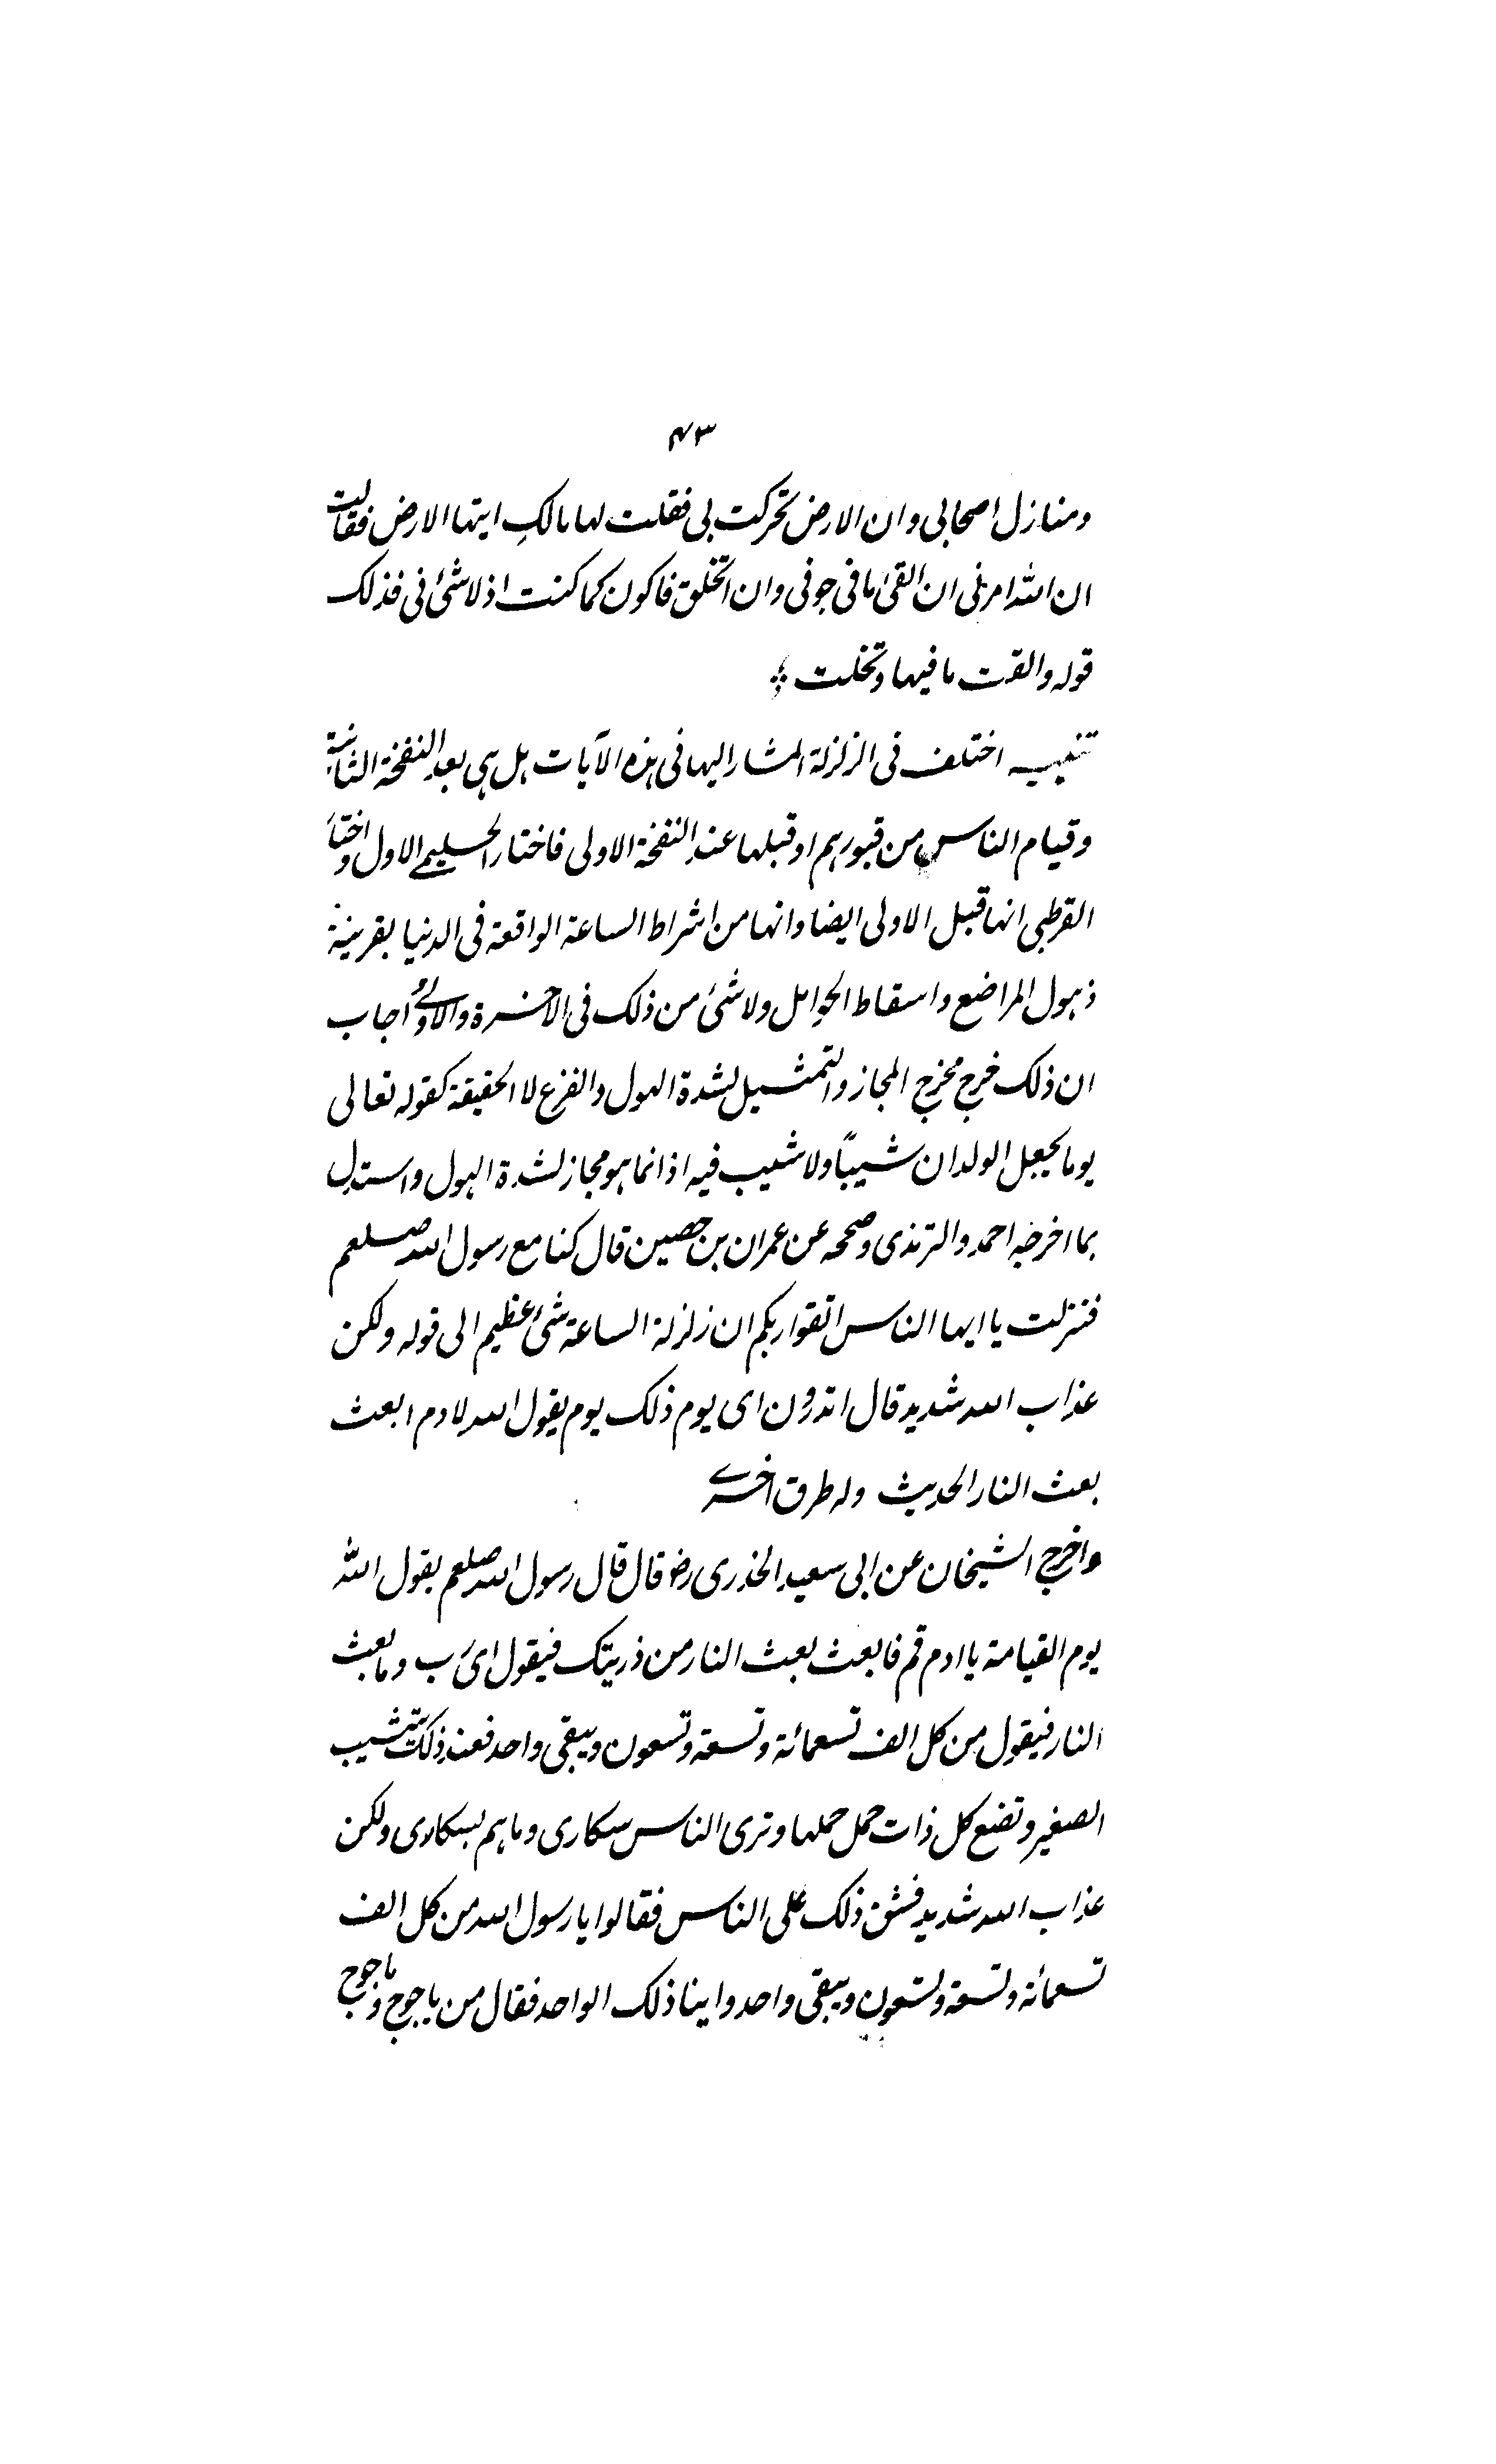 ۴۳
ومنازل اصحابی وان الارض تحرکت بی فقلت لها مالکِ ایتها الارض فقالت
ان اللّٰه امرنی ان القیٰ ما فی جوفی وان اتخلق فاکون کما کنت اذ لا شیٔ فی فذلک
قوله والقت ما فیها وتخلت
تنبیه اختلف فی الزلزلة المشار الیها فی هذه الآیات هل هی بعد النفخة الثانیة
وقیام الناس من قبورهم او قبلها عند النفخة الاولی فاختار الحلیمے الاول واختار
القرطبی انها قبل الاولی ایضا وانها من اشراط الساعة الواقعة فی الدنیا بقرینة
ذهول المراضع واسقاط الحوامل ولا شیٔ من ذلک فی الاخرة والاولٰے اجاب
ان ذلک خرج مخرج المجاز والتمثیل لشدة الهول والفزع لا الحقیقة کقوله تعالی
یوما یجعل الولدان شیبًا ولا شیب فیه اذ انما هو مجاز لشدة الهول واستدل
بما اخرجه احمد والترمذی وصححه عن عمران بن حصین قال کنا مع رسول الله صلعم
فنزلت یا ایها الناس اتقوا ربکم ان زلزلة الساعة شیٔ عظیم الی قوله ولکن
عذاب الله شدید قال اتدرون ای یوم ذلک یوم یقول الله لادم ابعث
بعث النار الحدیث وله طرق اخرے
واخرج الشیخان عن ابی سعید الخدری رضؤ قال قال رسول الله صلعم یقول اللّٰه
یوم القیامة یا ادم قم فابعث بعث النار من ذریتک فیقول ای رب وما بعث
النار فیقول من کل الف تسعمائة وتسعة وتسعون ویبقی واحد فعند ذلک یشیب
الصغیر وتضع کل ذات حمل حملها وتری الناس سکاری وما هم بسکاری ولکن
عذاب الله شدید فشق ذلک علی الناس فقالوا یا رسول الله من کل الف
تسعمائة وتسعة وتسعون ویبقی واحد واینا ذلک الواحد فقال من یاجوج وماجوج